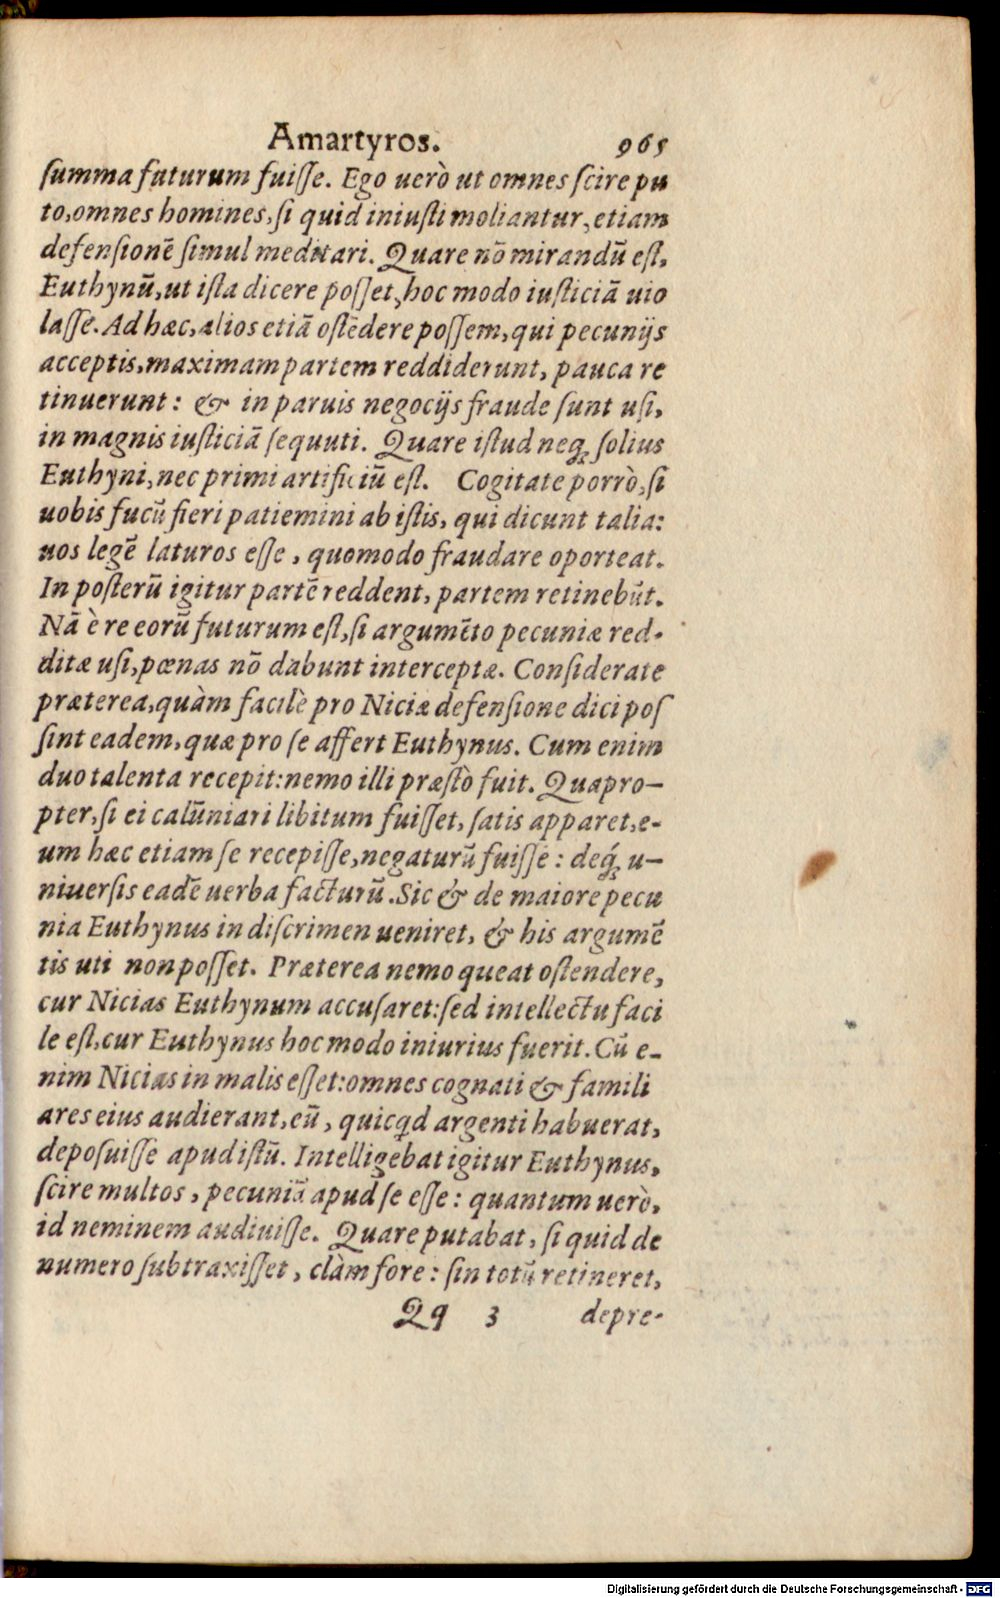 Amartyros. 965
summa futurum fuiſſe. Ego uerò ut omnes ſcire pu
to, omnes homines, ſi quid iniuſti moliantur, etiam
defenſionē ſimul meditari. Quare nō mirandū eſt,
Euthynū, ut iſta dicere poſſet, hoc modo iuſticiā uio
laſſe. Ad hæc, alios etiā oſtēdere poſſem, qui pecunijs
acceptis, maximam partem reddiderunt, pauca re
tinuerunt: & in paruis negocijs fraude ſunt uſi,
in magnis iuſticiā ſequuti. Quare iſtud neqꝫ ſolius
Euthyni, nec primi artificiū eſt. Cogitate porrò, ſi
uobis fucū fieri patiemini ab iſtis, qui dicunt talia:
uos legē laturos eſſe, quomodo fraudare oporteat.
In poſterū igitur partē reddent, partem retinebūt.
Nā è re eorū futurum eſt, ſi argumēto pecuniæ red-
ditæ uſi, pœnas nō dabunt interceptæ. Conſiderate
præterea, quàm facilè pro Niciæ defenſione dici poſ
ſint eadem, quæ pro ſe affert Euthynus. Cum enim
duo talenta recepit: nemo illi præſtò fuit. Quapro-
pter, ſi ei calūniari libitum fuiſſet, ſatis apparet, e-
um hæc etiam ſe recepiſſe, negaturū fuiſſe: deqꝫ́ u-
niuerſis eadē uerba facturū. Sic & de maiore pecu
nia Euthynus in diſcrimen ueniret, & his argumē
tis uti non poſſet. Præterea nemo queat oſtendere,
cur Nicias Euthynum accuſaret: ſed intellectu faci
le eſt, cur Euthynus hoc modo iniurius fuerit. Cū e-
nim Nicias in malis eſſet: omnes cognati & famili
ares eius audierant, eū, quicqd argenti habuerat,
depoſuiſſe apud iſtū. Intelligebat igitur Euthynus,
ſcire multos, pecuniā apud ſe eſſe: quantum uerò,
id neminem audiuiſſe. Quare putabat, ſi quid de
numero ſubtraxiſſet, clàm fore: ſin totū retineret,
Qq 3 depre-
Digitalisierung gefördert durch die Deutsche Forschungsgemeinschaft - DFG